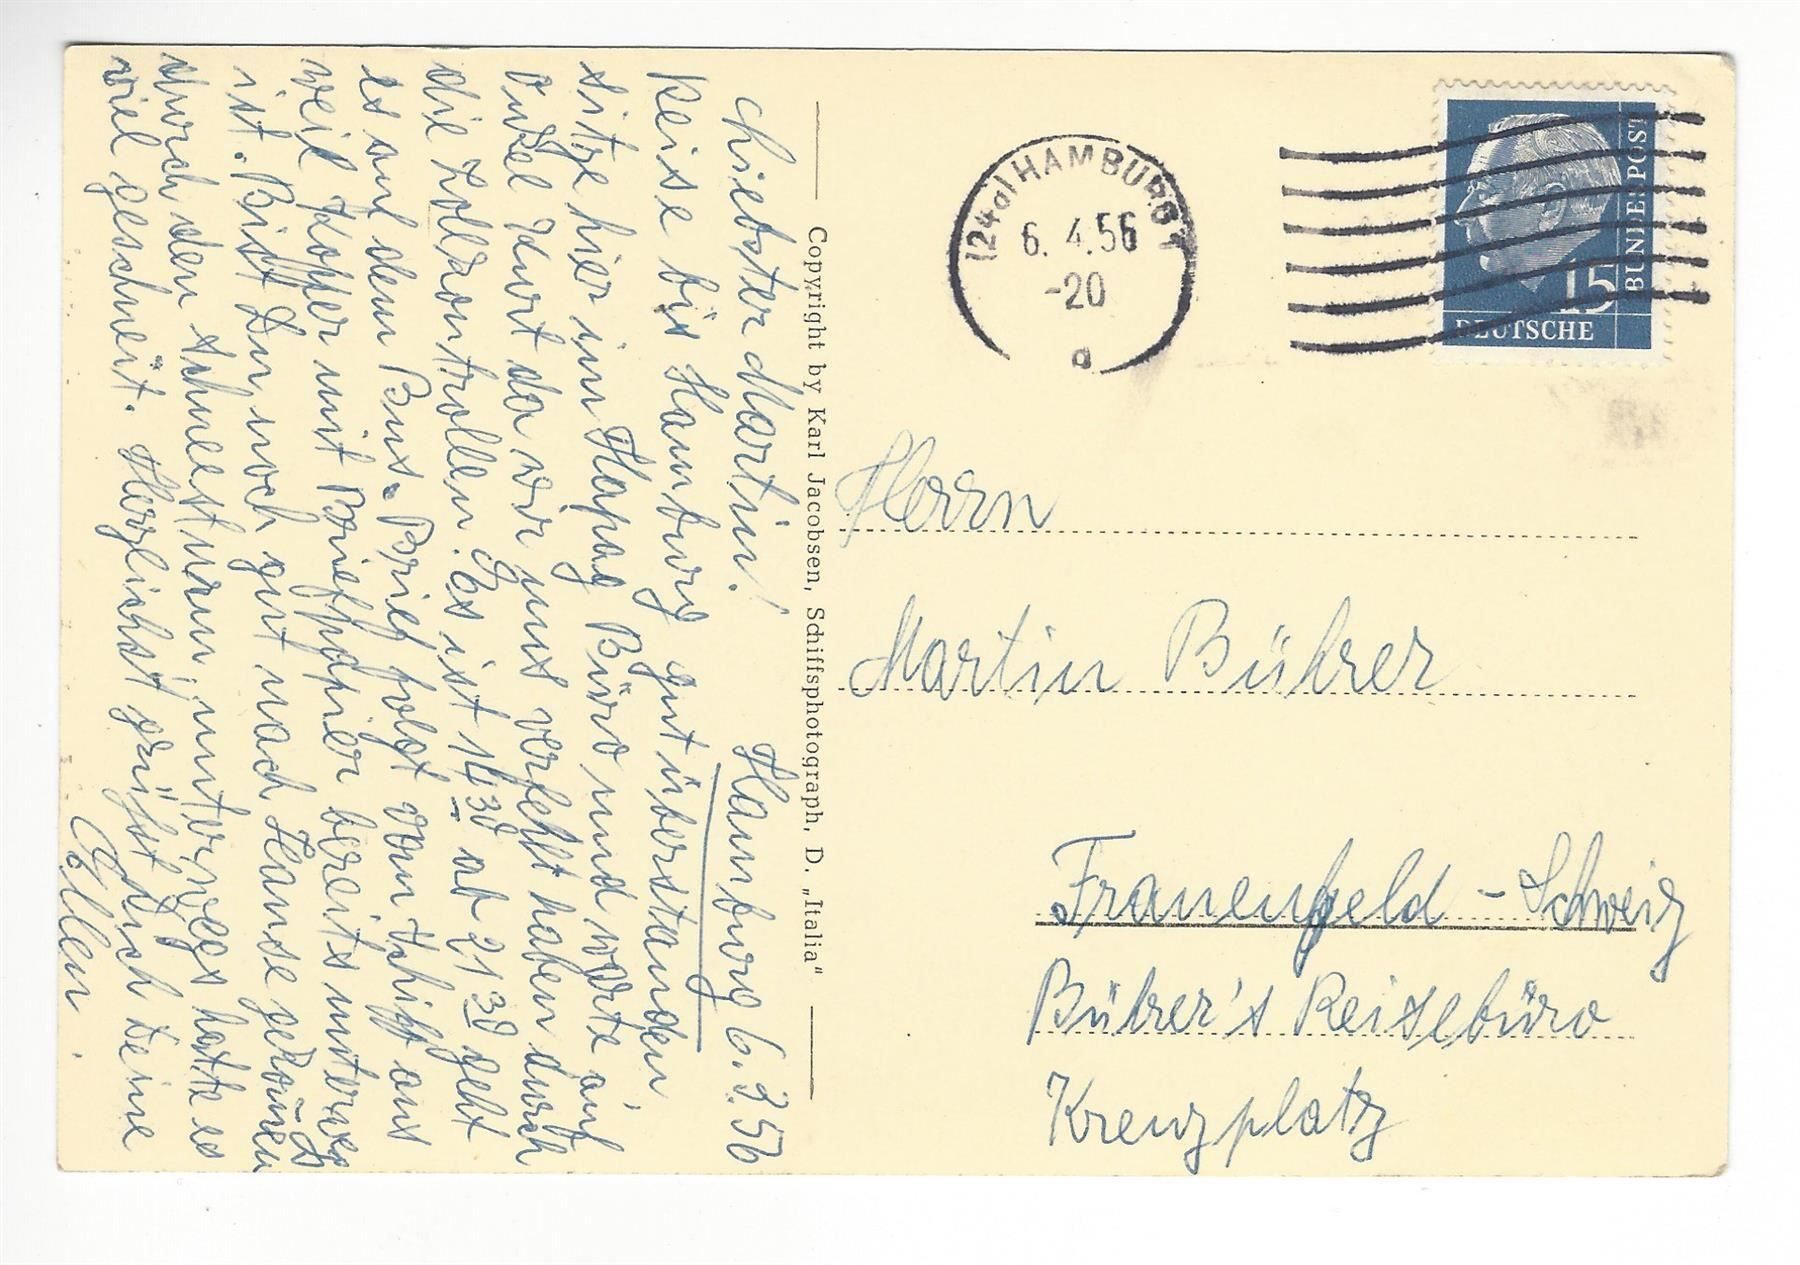 Hamburg 6.3.56
Liebster Martin!
Reise bis Hamburg gut überstanden,
sitze hier im Hapag Büro und warte auf
Onkel Kurt da wir uns verfehlt haben durch
die Zollkontrollen. Es ist 14 30 ab 21 30 geht
es auf dem Bus. Brief folgt vom Schiff aus
weil Koffer mit Briefpapier bereits unterwegs
ist. Bist Du noch gut nach Hause gekom̄en
durch den Schneesturm, unterwegs hatte es
viel geschneit. Herzlichst grüßt Dich Deine
Ellen.
Copyright by Karl Jacobsen, Schiffsphotograph, D. „Italia"
(24a) HAMBURG 1
6. 4.56
-20
a
15
DEUTSCHE
BUNDESPOST
Herrn
Martin Bührer
Frauenfeld - Schweiz
Bührer's Reisebüro
Kreuzplatz